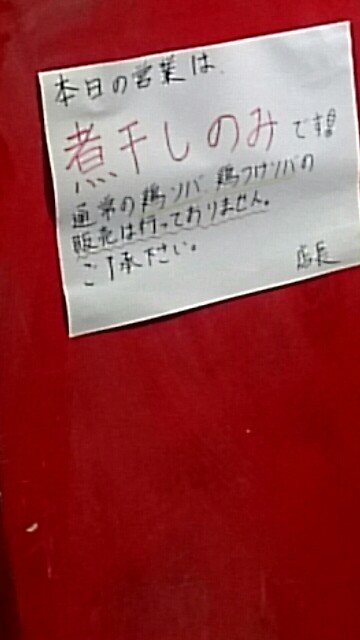 本日の営業は
煮干しのみです!!
通常の鶏ソバ 鶏つけソバの
販売は行っておりません。
ご了承下さい。
店長